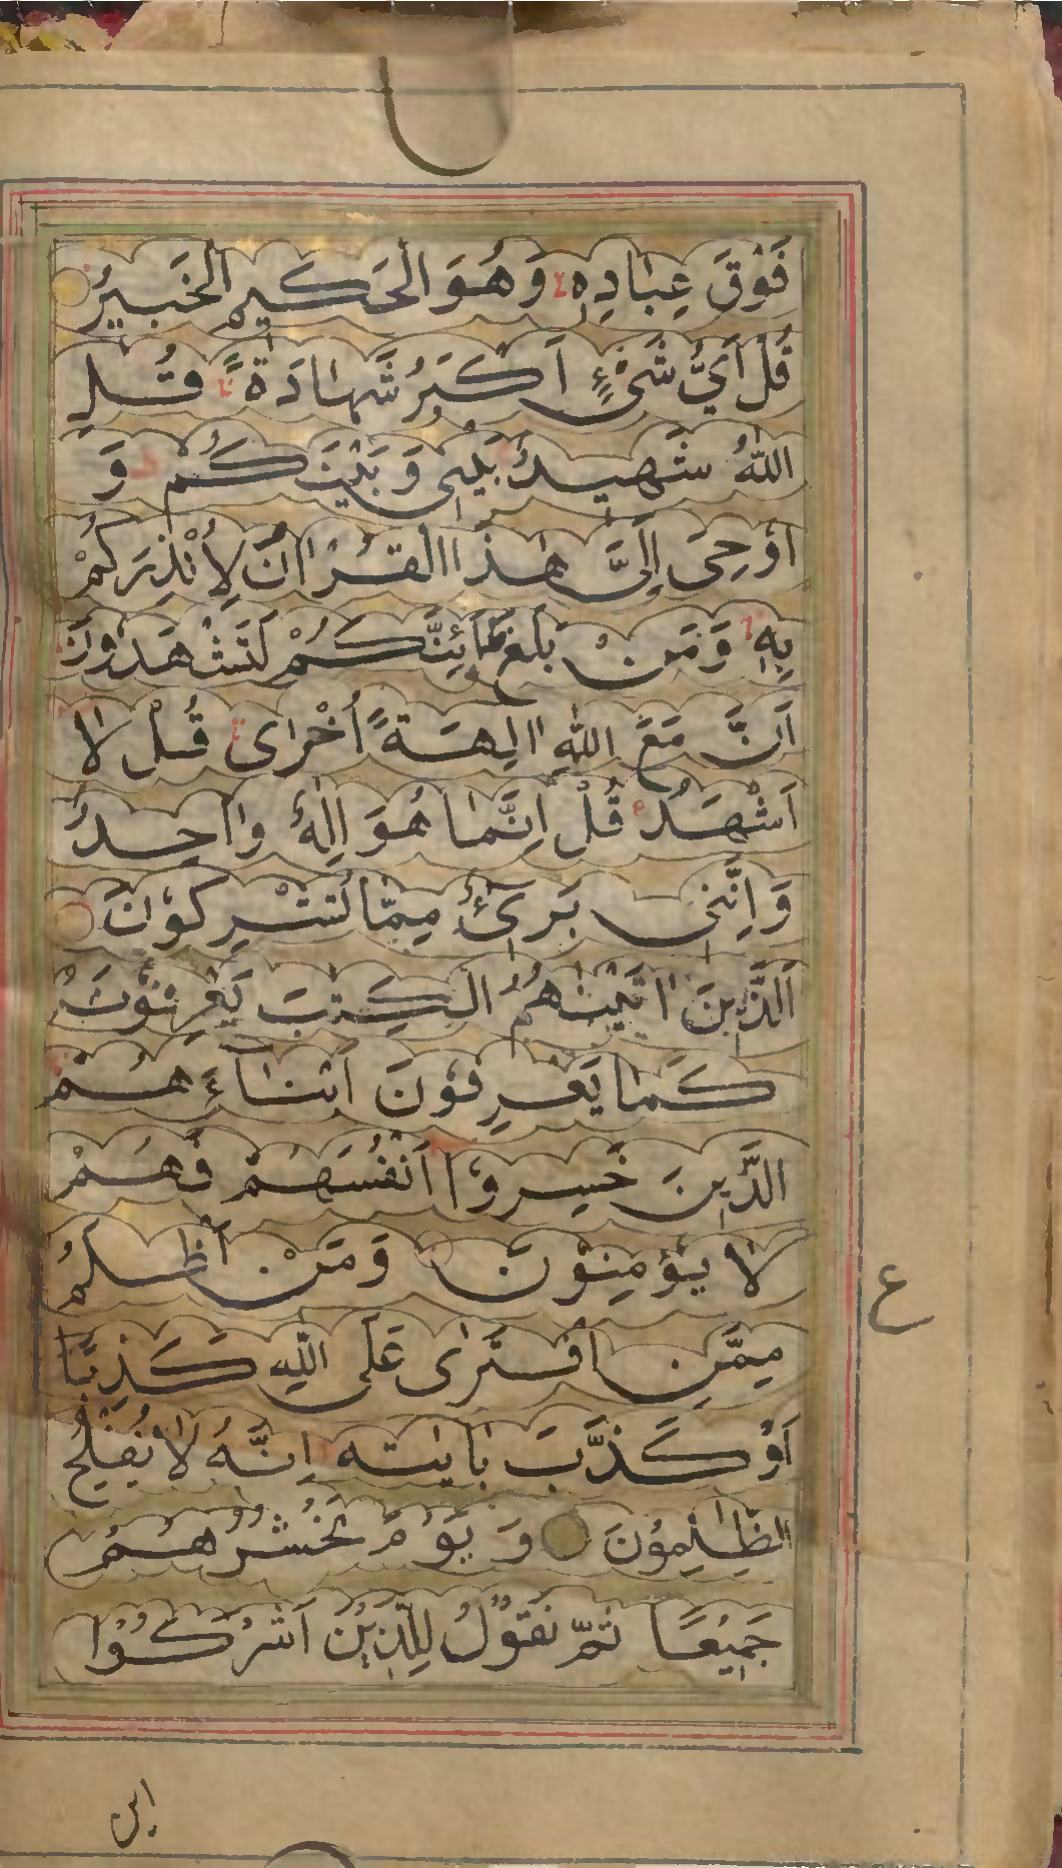 فَوْقَ عِبَادِهٖ وَهُوَ الْحَكِيمُ الْخَبِيرُ
قُلْ اَيُّ شَيْءٍ اَكْبَرُ شَهَادَةً قُلِ
اللّٰهُ شَهِيدٌ بَيْنِي وَبَيْنَكُمْ وَ
اُوحِيَ اِلَيَّ هٰذَا الْقُرْاٰنُ لِاُنْذِرَكُمْ
بِهٖ وَمَنْ بَلَغَ اَئِنَّكُمْ لَتَشْهَدُونَ
اَنَّ مَعَ اللّٰهِ اٰلِهَةً اُخْرٰى قُلْ لَا
اَشْهَدُ قُلْ اِنَّمَا هُوَ اِلٰهٌ وَاحِدٌ
وَاِنَّنِي بَرِيءٌ مِمَّا تُشْرِكُونَ
اَلَّذِينَ اٰتَيْنٰهُمُ الْكِتٰبَ يَعْرِفُونَهُ
كَمَا يَعْرِفُونَ اَبْنَاءَهُمْ
الَّذِينَ خَسِرُوا اَنْفُسَهُمْ فَهُمْ
لَا يُؤْمِنُونَ وَمَنْ اَظْلَمُ
مِمَّنِ افْتَرٰى عَلَى اللّٰهِ كَذِبًا
اَوْ كَذَّبَ بِاٰيٰتِهٖ اِنَّهُ لَا يُفْلِحُ
الظّٰلِمُونَ وَيَوْمَ نَحْشُرُهُمْ
جَمِيعًا ثُمَّ نَقُولُ لِلَّذِينَ اَشْرَكُوا
ع
اين